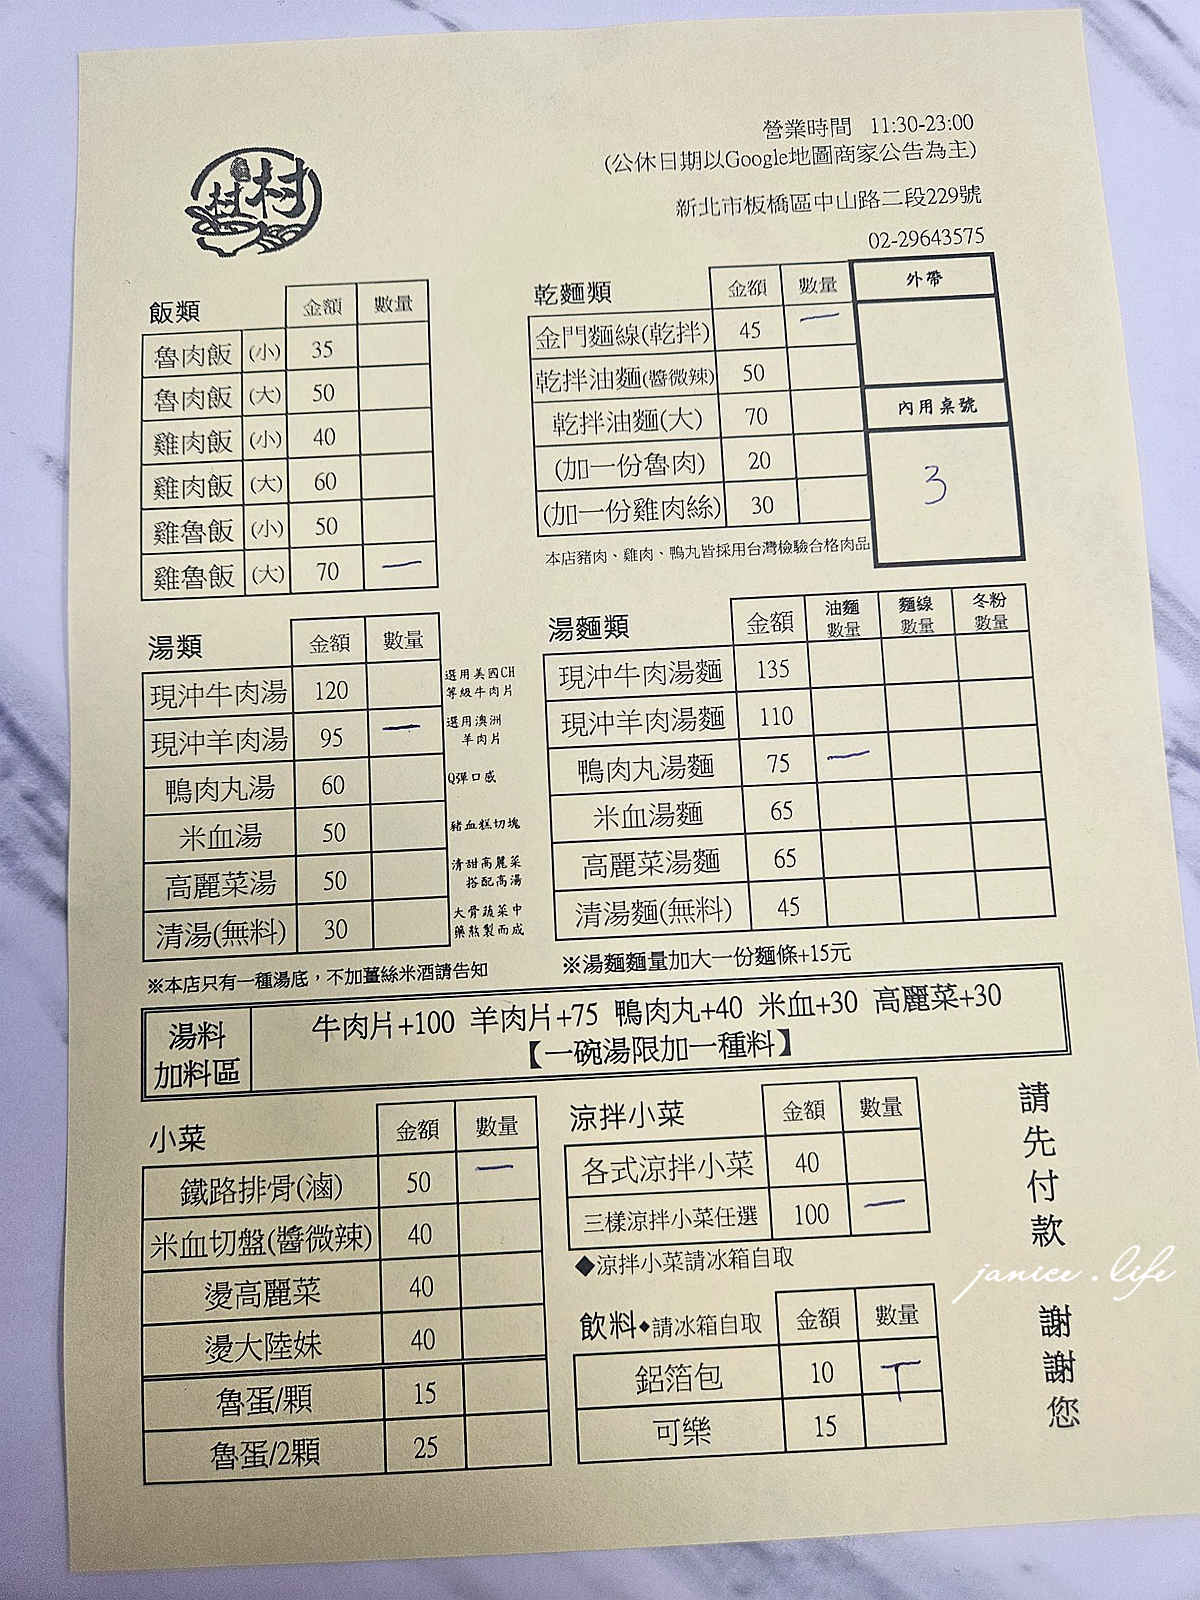 村村
營業時間 11:30-23:00
(公休日期以Google地圖商家公告為主)
新北市板橋區中山路二段229號
02-29643575
飯類 金額 數量
魯肉飯 (小) 35
魯肉飯 (大) 50
雞肉飯 (小) 40
雞肉飯 (大) 60
雞魯飯 (小) 50
雞魯飯 (大) 70 一
乾麵類 金額 數量
金門麵線(乾拌) 45 一
乾拌油麵(醬微辣) 50
乾拌油麵(大) 70
(加一份魯肉) 20
(加一份雞肉絲) 30
本店豬肉、雞肉、鴨丸皆採用台灣檢驗合格肉品
外帶
內用桌號
3
湯類 金額 數量
現沖牛肉湯 120
選用美國CH
等級牛肉片
現沖羊肉湯 95 一
選用澳洲
羊肉片
鴨肉丸湯 60 Q彈口感
米血湯 50 豬血糕切塊
高麗菜湯 50
清甜高麗菜
搭配高湯
清湯(無料) 30
大骨蔬菜中
藥熬製而成
※本店只有一種湯底，不加薑絲米酒請告知
湯麵類 金額 油麵數量 麵線數量 冬粉數量
現沖牛肉湯麵 135
現沖羊肉湯麵 110
鴨肉丸湯麵 75 一
米血湯麵 65
高麗菜湯麵 65
清湯麵(無料) 45
※湯麵麵量加大一份麵條+15元
湯料
加料區
牛肉片+100 羊肉片+75 鴨肉丸+40 米血+30 高麗菜+30
【一碗湯限加一種料】
小菜 金額 數量
鐵路排骨(滷) 50 一
米血切盤(醬微辣) 40
燙高麗菜 40
燙大陸妹 40
魯蛋/顆 15
魯蛋/2顆 25
涼拌小菜 金額 數量
各式涼拌小菜 40
三樣涼拌小菜任選 100 一
◆涼拌小菜請冰箱自取
飲料◆請冰箱自取 金額 數量
鋁箔包 10 T
可樂 15
請先付款 謝謝您
janice.life